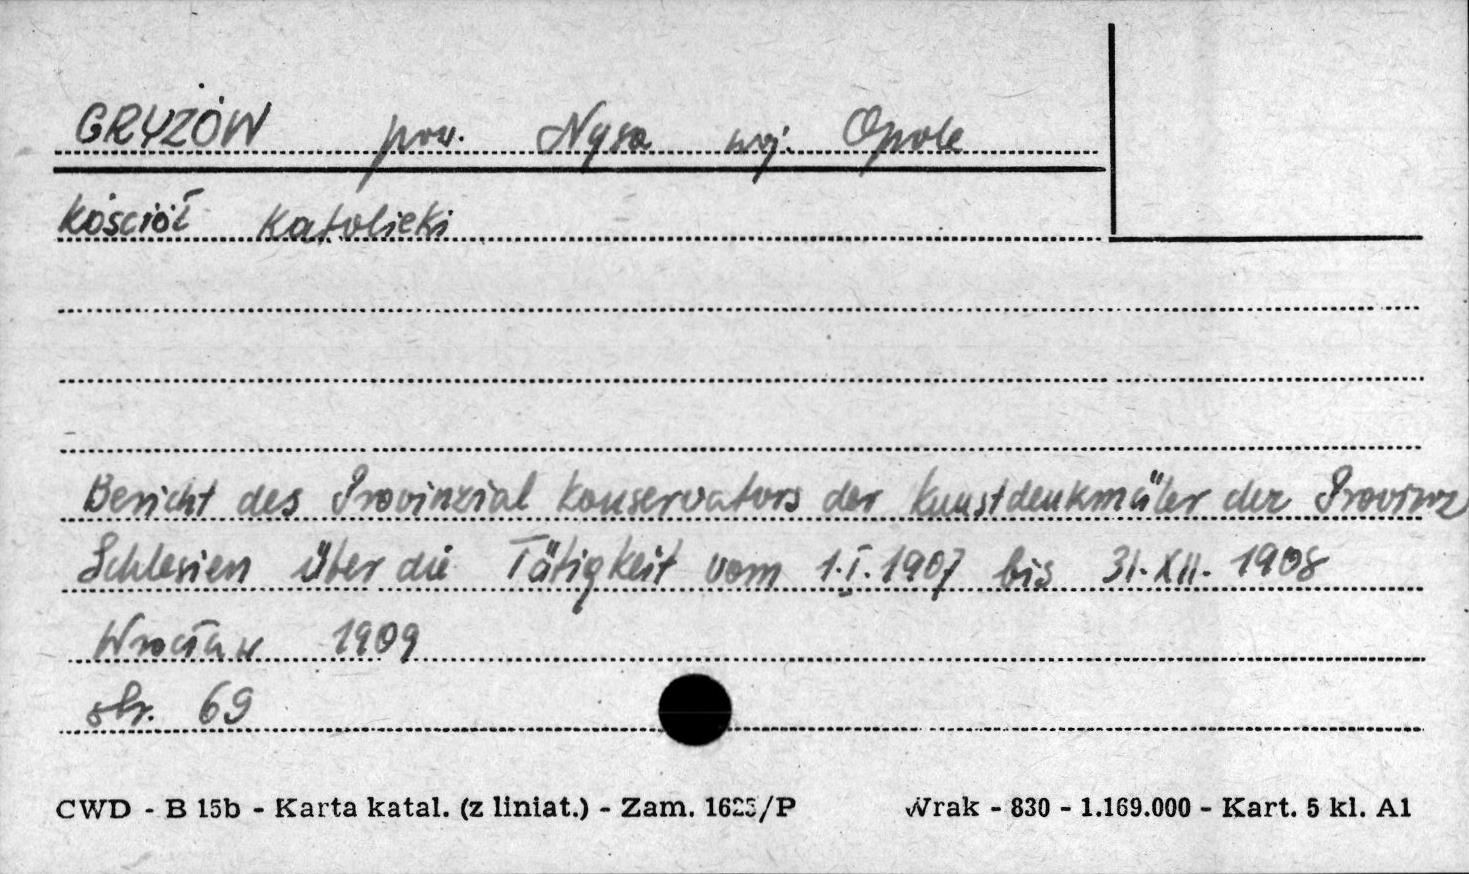 GRYŻÓW pow. Nysa woj. Opole
Kościół Katolicki
Bericht des Provinzial Konservators der Kunstdenkmäler der Provinz
Schlesien über die Tätigkeit vom 1.I.1907 bis 31.XII.1908
Wrocław 1909
str. 69
CWD - B 15b - Karta katal. (z liniat.) - Zam. 1625/P Wrak - 830 - 1.169.000 - Kart. 5 kl. A1